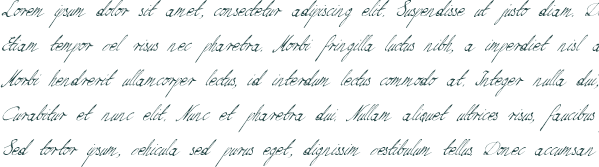 Lorem ipsum dolor sit amet, consectetur adipiscing elit. Suspendisse ut justo diam. D
Etiam tempor vel risus nec pharetra. Morbi fringilla luctus nibh, a imperdiet nisl a
Morbi hendrerit ullamcorper lectus, id interdum lectus commodo at. Integer nulla dui,
Curabitur et nunc elit. Nunc et pharetra dui. Nullam aliquet ultrices risus, faucibus
Sed tortor ipsum, vehicula sed purus eget, dignissim vestibulum tellus. Donec accumsan